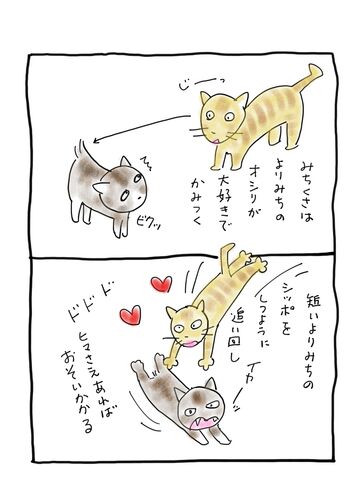 じーっ
みちくさは
よりみちの
オシリが
大好きで
かみつく
ビクッ
短いよりみちの
シッポを
しつように
追い回し
イカ
ドドド
ヒマさえあれば
おそいかかる